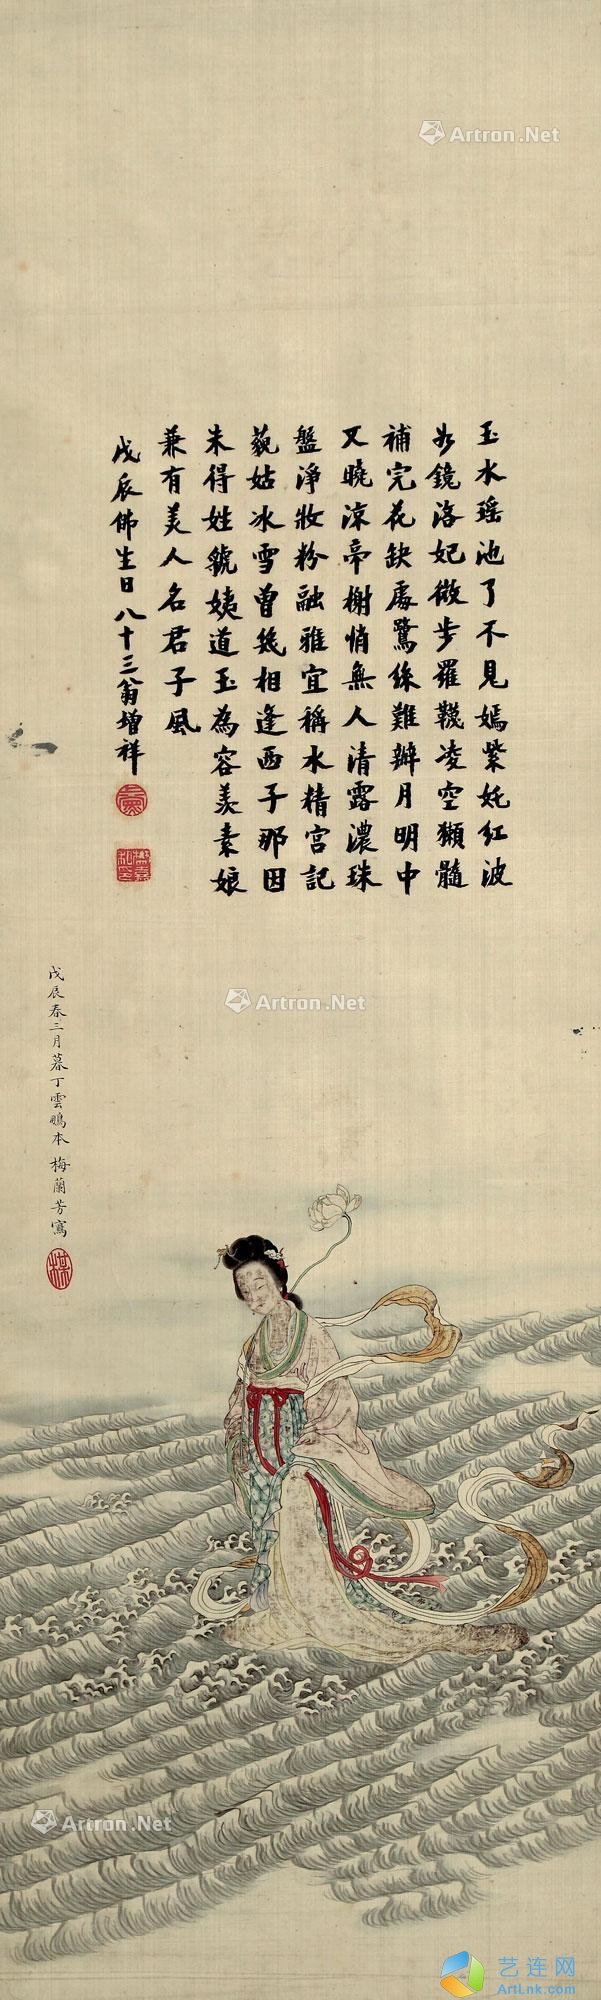 Artron.Net
玉水瑶池了不見嫣紫奼紅波
如鏡洛妃微步羅韈凌空獺髓
補完花缺處鷺絲難辦月明中
又曉涼亭榭悄無人清露濃珠
盤淨妝粉融雅宜稱水精宮記
藐姑冰雪曾幾相逢西子那因
朱得姓虢姨道玉為容羨素娘
兼有美人名君子風
戊辰佛生日八十三翁增祥
Artron.Net
戊辰春三月摹丁雲鵬本 梅蘭芳寫
梅
Artron.Net
艺连网
ArtLnk.com